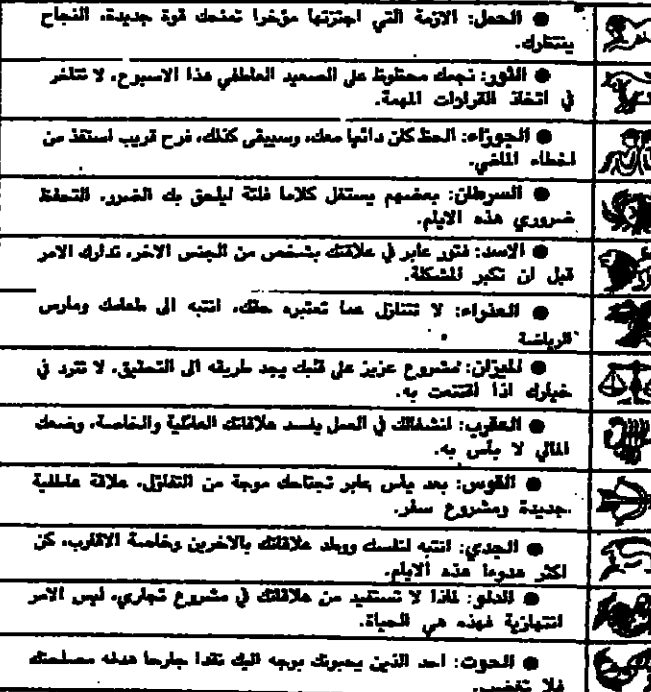 ● الحمل: الازمة التي اجتزتها مؤخرا تمنحك قوة جديدة. النجاح
ينتظرك.
● الثور: نجمك محظوظ على الصعيد العاطفي هذا الاسبوع. لا تتاخر
في اتخاذ القرارات المهمة.
● الجوزاء: الحظ كان دائما معك، وسيبقى كذلك، فرح قريب استفد من
اخطاء الماضي.
● السرطان: بعضهم يستغل كلاما فلتة ليلحق بك الضرر. التحفظ
ضروري هذه الايام.
● الاسد: فتور عابر في علاقتك بشخص من الجنس الاخر. تدارك الامر
قبل ان تكبر المشكلة.
● العذراء: لا تتنازل عما تعتبره حقك. انتبه الى طعامك ومارس
الرياضة
● الميزان: مشروع عزيز على قلبك يجد طريقه الى التحقيق. لا تترد في
خيارك اذا اقتنعت به.
● العقرب: انشغالك في العمل يفسد علاقاتك العائلية والخاصة. وضعك
المالي لا باس به.
● القوس: بعد ياس عابر تجتاحك موجة من التفاؤل. علاقة عاطفية
جديدة ومشروع سفر.
● الجدي: انتبه لنفسك ووطد علاقاتك بالاخرين وخاصة الاقارب. كن
اكثر هدوءا هذه الايام.
● الدلو: لماذا لا تستفيد من علاقاتك في مشروع تجاري. ليس الامر
انتهازية فهذه هي الحياة.
● الحوت: احد الذين يحبونك يوجه اليك نقدا جارحا هدفه مصلحتك
فلا تغضب.